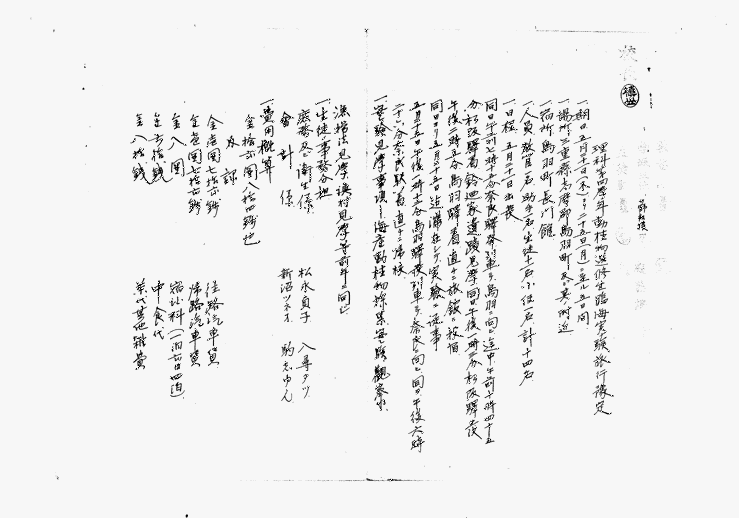 理科第四學年動植物選修生臨海実験旅行豫定
一、期日 五月二十一日(木)ヨリ二十五日(月)ニ至ル五日間
一、場所 三重縣志摩郡鳥羽町及其附近
一、宿所 鳥羽町長門館
一、人員 教官一名 助手一名 生徒十一名 小使一名 計十四名
一、日程 五月二十一日出発
同日午前七時十分奈良驛発列車ニテ鳥羽ニ向ヒ途中午前十時四十五
分松阪驛着鈴廼家遺蹟見學同日午後一時三分松阪驛発
午後二時五分鳥羽驛着直チニ旅館ニ投宿
同日ヨリ五月二十五日迄滞在シテ実験ニ従事
五月二十五日午後一時二十分鳥羽驛発列車ニテ奈良ニ向ヒ同日午後六時
二十一分奈良驛着直チニ帰校
一、実験見學事項 海産動植物採集実験觀察
漁撈法見學漁村見學等前年ニ同ジ
一、生徒ノ事務分担
庶務及ビ衛生係 松永貞子 八尋タツ
会計係 新沼ツネオ 駒志ゆん
一、費用概算
金拾六圓八拾四銭也
内訳
金壱圓七拾六銭 往路汽車賃
金壱圓七拾六銭 帰路汽車賃
金八圓 宿泊料(一泊二圓四泊)
金六拾銭 中食代
金八拾銭 茶代其他雑費